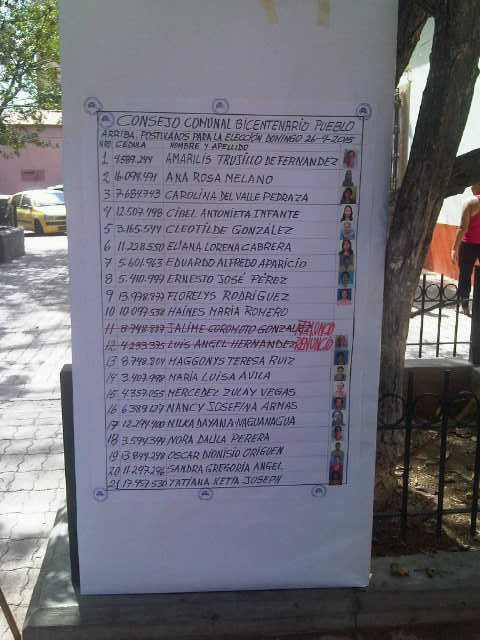 CONSEJO COMUNAL BICENTENARIO PUEBLO
ARRIBA, POSTULADOS PARA LA ELECCIÓN DOMINGO 26-4-2015
NRO CEDULA NOMBRE Y APELLIDO
1 4.589.244 AMARILIS TRUJILLO DE FERNANDEZ
2 16.094.474 ANA ROSA MELANO
3 7.684.743 CAROLINA DEL VALLE PEDRAZA
4 12.507.498 CIBEL ANTONIETA INFANTE
5 3.165.544 CLEOTILDE GONZÁLEZ
6 11.228.550 ELIANA LORENA CABRERA
7 5.601.963 EDUARDO ALFREDO APARICIO
8 5.410.997 ERNESTO JOSÉ PÉREZ
9 13.978.877 FLORELYS RODRÍGUEZ
10 10.099.538 HAINES MARÍA ROMERO
11 8.748.887 JALIME COROMOTO GONZALEZ RENUNCIO
12 4.253.375 LUIS ANGEL HERNANDEZ RENUNCIO
13 8.748.804 MAGGONYS TERESA RUIZ
14 3.407.998 MARÍA LUISA AVILA
15 4.357.055 MERCEDEZ ZULAY VEGAS
16 6.389.127 NANCY JOSEFINA ARMAS
17 12.294.400 NILKA DAYANA YAGUANAGUA
18 3.594.394 NORA DALILA PERERA
19 13.844.298 OSCAR DIONISIO ORIGUEN
20 11.297.296 SANDRA GREGORIA ANGEL
21 17.957.530 TATIANA KETIA JOSEPH